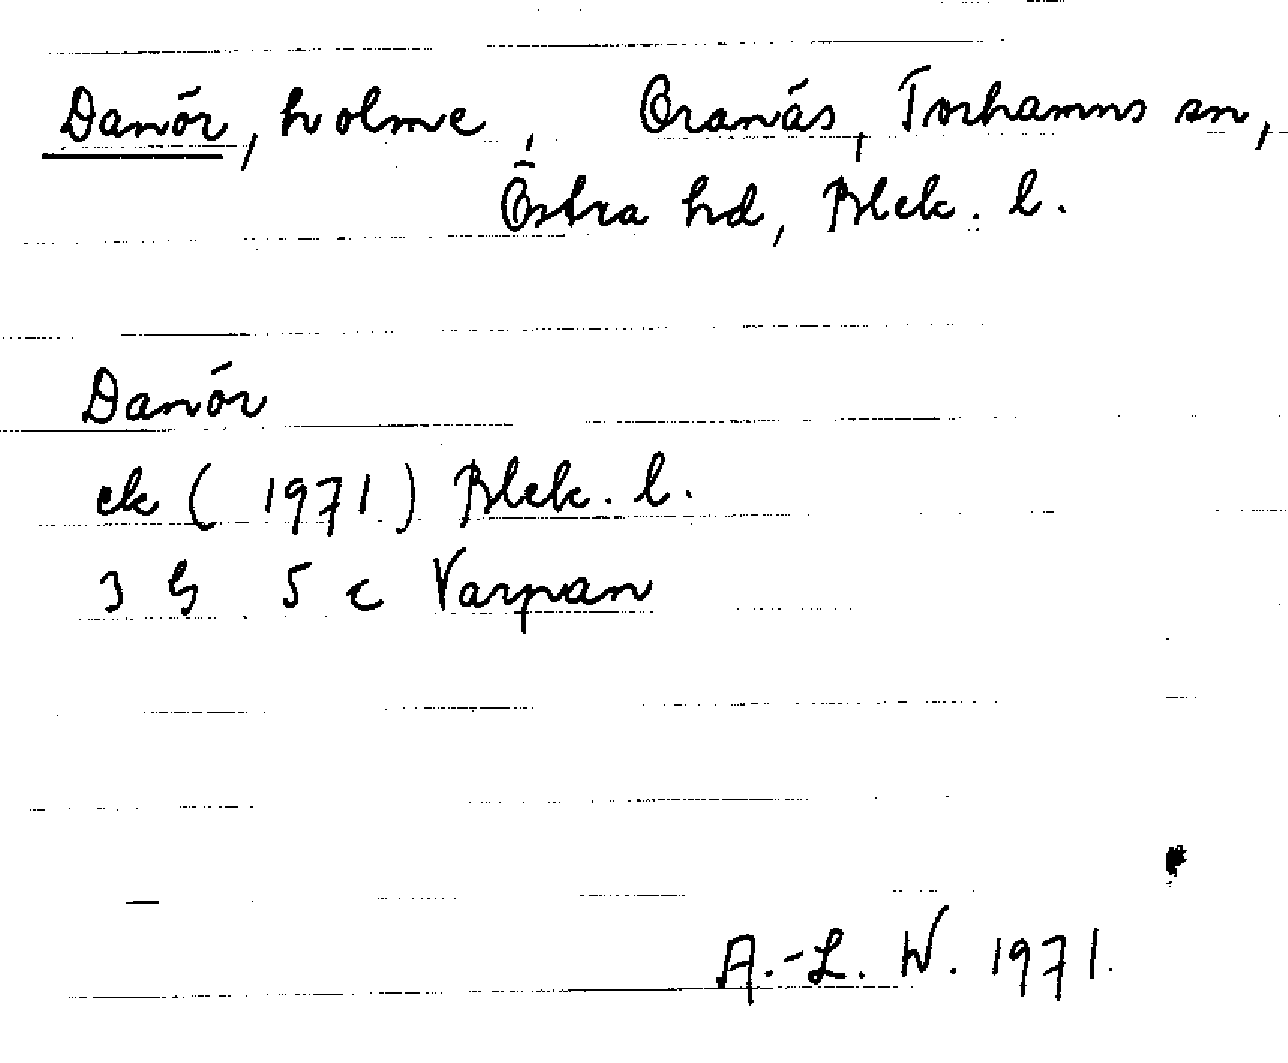 Danör, holme, Öranäs, Torhamns sn,
Östra hd, Blek. l.
Danör
ek (1971) Blek. l.
3 G 5 c Varpan
A.-L. W. 1971.